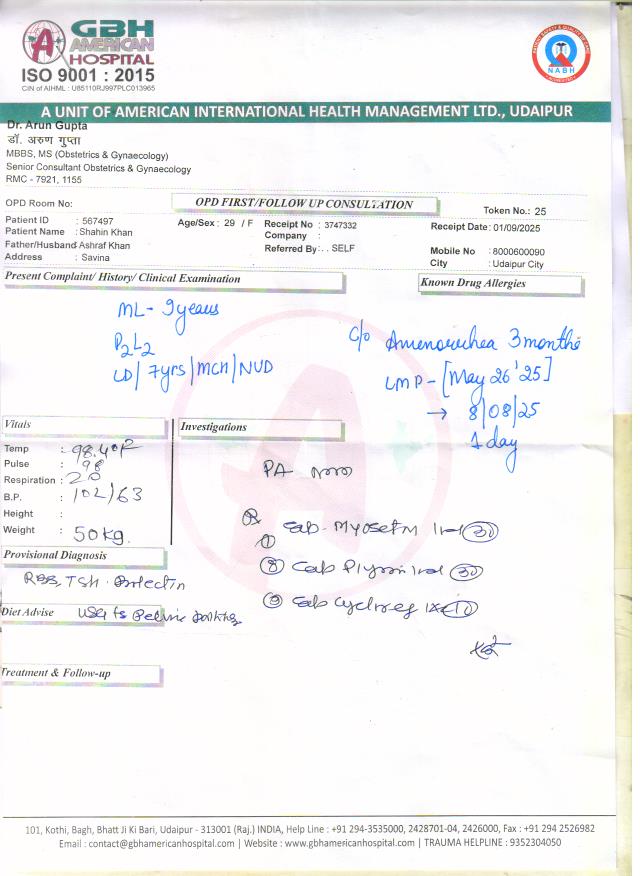 GBH
AMERICAN
HOSPITAL
ISO 9001 : 2015
CIN of AIHML : U85110RJ997PLC013965
NABH
A UNIT OF AMERICAN INTERNATIONAL HEALTH MANAGEMENT LTD., UDAIPUR
Dr. Arun Gupta
डॉ. अरुण गुप्ता
MBBS, MS (Obstetrics & Gynaecology)
Senior Consultant Obstetrics & Gynaecology
RMC - 7921, 1155
OPD Room No:
OPD FIRST/FOLLOW UP CONSULTATION
Token No.: 25
Patient ID : 567497
Age/Sex : 29 / F
Receipt No : 3747332
Receipt Date: 01/09/2025
Patient Name : Shahin Khan
Company :
Father/Husband Ashraf Khan
Referred By: . . SELF
Mobile No : 8000600090
Address : Savina
City : Udaipur City
Present Complaint/ History/ Clinical Examination
Known Drug Allergies
ML - 9 years
P2L2
LD/ 7yrs/MCH/NVD
c/o Amenorrhea 3 months
LMP - [May 26 '25]
→ 8/08/25
1 day
Vitals
Investigations
Temp : 98.4°F
Pulse : 98
Respiration : 20
B.P. : 102/63
Height :
Weight : 50kg.
PA
Rx
① 30
② 30
③ 10
Provisional Diagnosis
RBS, TSH
Diet Advise
USG Pelvic
Treatment & Follow-up
101, Kothi, Bagh, Bhatt Ji Ki Bari, Udaipur - 313001 (Raj.) INDIA, Help Line : +91 294-3535000, 2428701-04, 2426000, Fax : +91 294 2526982
Email : contact@gbhamericanhospital.com | Website : www.gbhamericanhospital.com | TRAUMA HELPLINE : 9352304050